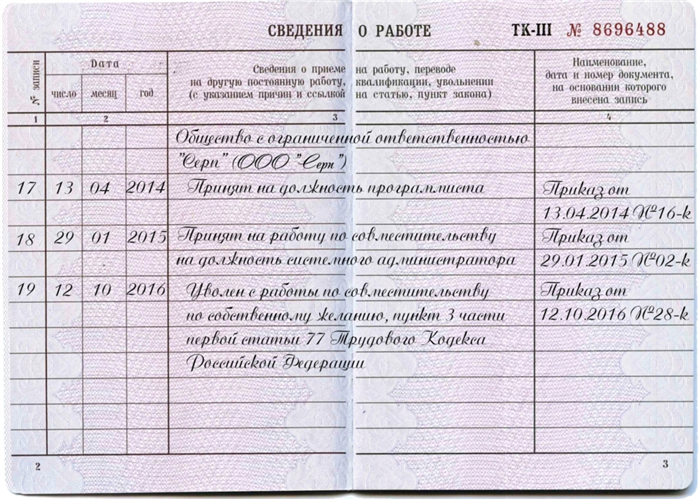 СВЕДЕНИЯ О РАБОТЕ ТК-III № 8696488
№ записи
Дата
число месяц год
Сведения о приеме на работу, переводе
на другую постоянную работу, квалификации, увольнении
(с указанием причин и ссылкой на статью, пункт закона)
Наименование,
дата и номер документа,
на основании которого
внесена запись
1 2 3 4
Общество с ограниченной ответственностью
"Серп" (ООО "Серп")
17 13 04 2014 Принят на должность программиста Приказ от
13.04.2014 №16-к
18 29 01 2015 Принят на работу по совместительству Приказ от
на должность системного администратора 29.01.2015 №02-к
19 12 10 2016 Уволен с работы по совместительству Приказ от
по собственному желанию, пункт 3 части 12.10.2016 №28-к
первой статьи 77 Трудового Кодекса
Российской Федерации
2 3